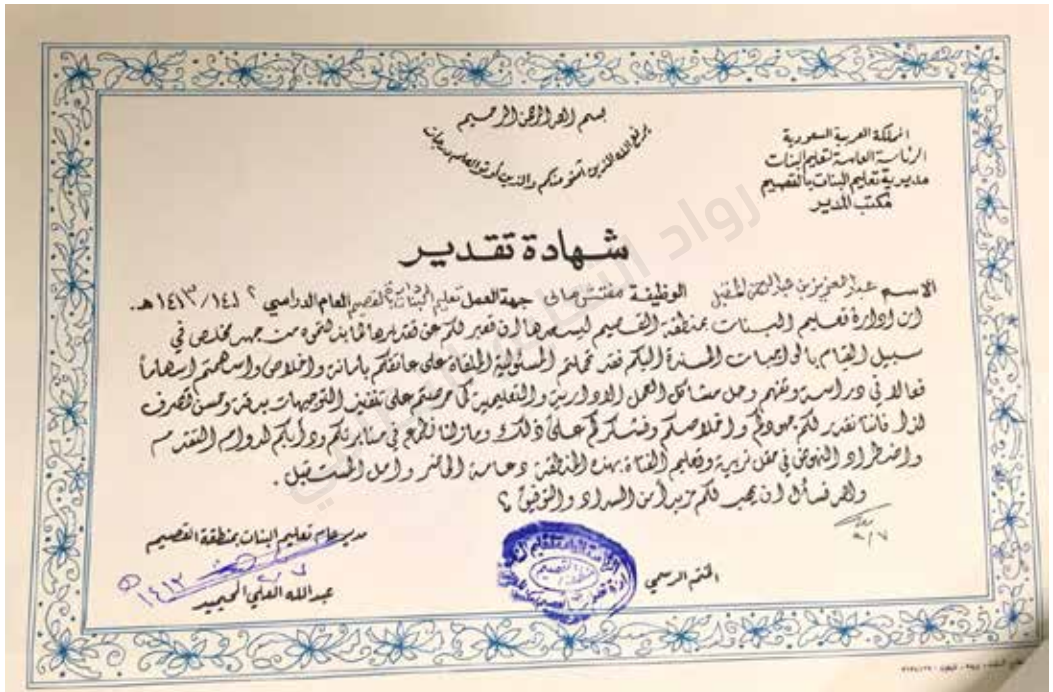 بسم الله الرحمن الرحيم
يرفع الله الذين آمنوا منكم والذين أوتوا العلم درجات
المملكة العربية السعودية
الرئاسة العامة لتعليم البنات
مديرية تعليم البنات بالقصيم
مكتب المدير
شهادة تقدير
الاسم عبدالعزيز بن عبدالرحمن المقبل الوظيفة مفتش مالي جهة العمل تعليم البنات بالقصيم العام الدراسي ١٤١٣/١٤١٢ هـ.
ان ادارة تعليم البنات بمنطقة القصيم ليسرها ان تعبر لكم عن تقديرها لما بذلتموه من جهد مخلص في
سبيل القيام بالواجبات المسندة اليكم فقد تحملتم المسئولية الملقاة على عاتقكم بأمانة واخلاص واسهمتم اسهاماً
فعالا في دراسة وتفهم وحل مشاكل العمل الادارية والتعليمية كما حرصتم على تنفيذ التوجيهات بدقة وحسن تصرف
لذا فاننا نقدر لكم جهودكم واخلاصكم ونشكركم على ذلك ومازلنا نطمع في مثابرتكم ودأبكم لدوام التقدم
واضطراد النهوض في حقل تربية وتعليم الفتاة بهذه المنطقة دعامة الحاضر وامل المستقبل .
والله نسأل ان يهب لكم مزيداً من السداد والتوفيق ؛
مدير عام تعليم البنات بمنطقة القصيم
الختم الرسمي
عبدالله العلي الحميد
رواد